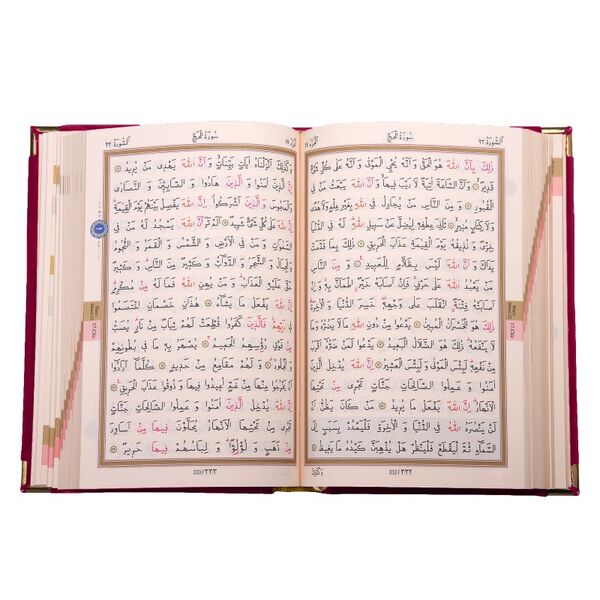 الجزء ١٧
سورة الحج
السورة ٢٢
ذلك بان الله هو الحق وانه يحي الموتى وانه على كل شيء
قدير وان الساعة اتية لا ريب فيها وان الله يبعث من في
القبور ومن الناس من يجادل في الله بغير علم ولا هدى
ولا كتاب منير ثاني عطفه ليضل عن سبيل الله له في الدنيا
خزي ونذيقه يوم القيمة عذاب الحريق ذلك بما قدمت
يداك وان الله ليس بظلام للعبيد ومن الناس
من يعبد الله على حرف فان اصابه خير اطمان به وان
اصابته فتنة انقلب على وجهه خسر الدنيا والاخرة
ذلك هو الخسران المبين يدعوا من دون الله ما لا يضره وما
لا ينفعه ذلك هو الضلال البعيد يدعوا لمن ضره اقرب
من نفعه لبئس المولى ولبئس العشير ان الله يدخل الذين
امنوا وعملوا الصالحات جنات تجري من تحتها
الانهار ان الله يفعل ما يريد من كان يظن ان
لن ينصره الله في الدنيا والاخرة فليمدد بسبب الى
السماء ثم ليقطع فلينظر هل يذهبن كيده ما يغيظ
وكذلك
332/٣٣٢
السورة ٢٢
سورة الحج
وكذلك انزلناه ايات بينات وان الله يهدي من يريد
ان الذين امنوا والذين هادوا والصابئين والنصارى
والمجوس والذين اشركوا ان الله يفصل بينهم يوم القيمة
ان الله على كل شيء شهيد الم تر ان الله يسجد له من في
السموات ومن في الارض والشمس والقمر والنجوم
والجبال والشجر والدواب وكثير من الناس وكثير
حق عليه العذاب ومن يهن الله فما له من مكرم
ان الله يفعل ما يشاء هذان خصمان اختصموا
في ربهم فالذين كفروا قطعت لهم ثياب من نار يصب
من فوق رؤسهم الحميم يصهر به ما في بطونهم
والجلود ولهم مقامع من حديد كلما ارادوا
ان يخرجوا منها من غم اعيدوا فيها وذوقوا عذاب الحريق
ان الله يدخل الذين امنوا وعملوا الصالحات جنات
تجري من تحتها الانهار يحلون فيها من اساور
من ذهب ولؤلؤا ولباسهم فيها حرير
333/٣٣٣